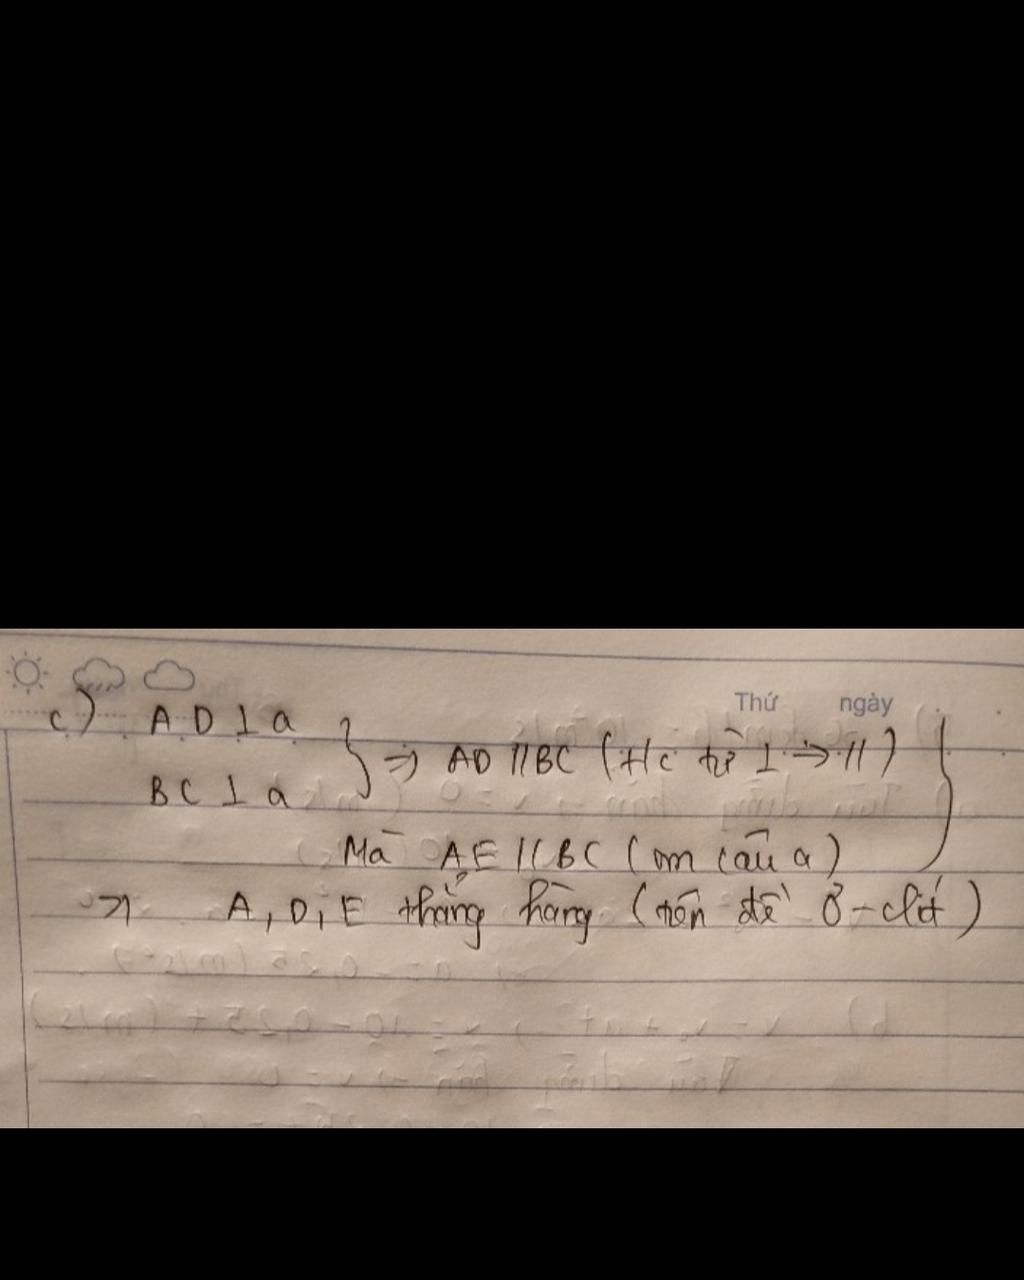 Thứ ngày
c) AD ⊥ a
BC ⊥ a } => AD // BC (t/c từ ⊥ → //)
Mà AE // BC (cm câu a)
=> A, D, E thẳng hàng (tiên đề Ơ-clít)